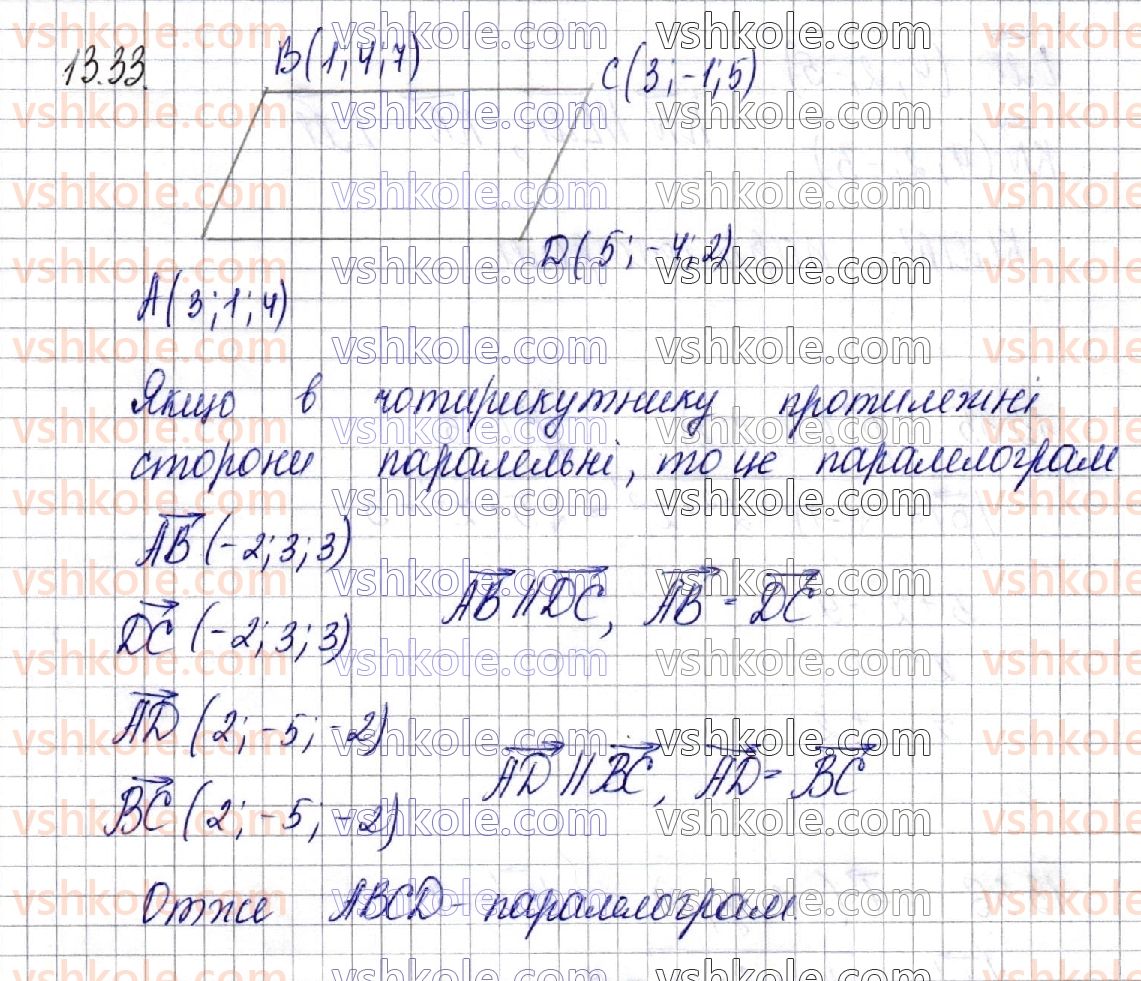 13.33.
B(1;4;7)
C(3;-1;5)
D(5;-4;2)
A(3;1;4)
Якщо в чотирикутнику протилежні
сторони паралельні, то це паралелограм
AB(-2;3;3)
DC(-2;3;3)
AB || DC, AB = DC
AD(2;-5;-2)
BC(2;-5;-2)
AD || BC, AD = BC
Отже ABCD - паралелограм
vshkole.com